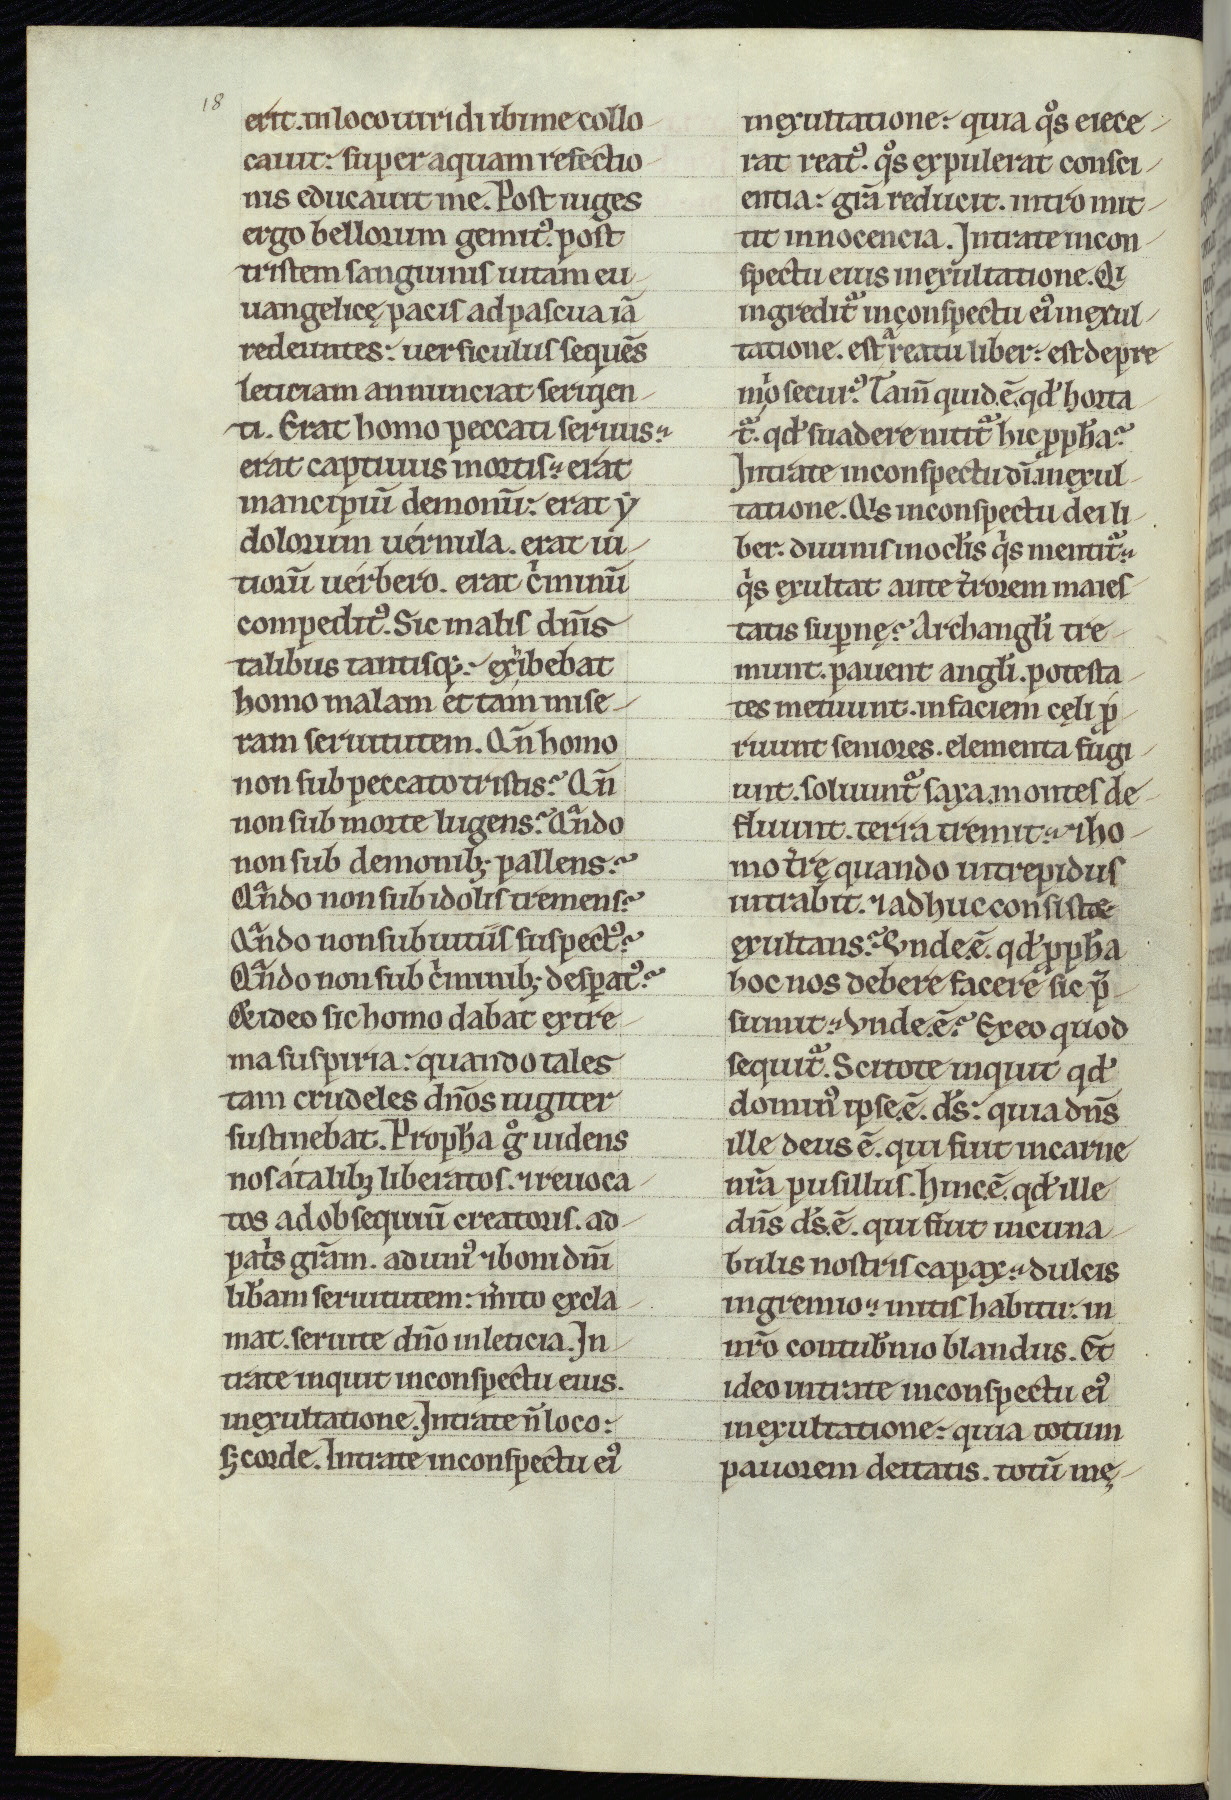 18
erit. in loco uiridi ibi me collo-
cauit: super aquam refectio-
nis educauit me. Post iuges
ergo bellorum gemitꝰ. post
tristem sanguinis uitam eu-
uangelicę pacis ad pascua iā
redeuntes: uersiculus sequēs
leticiam annunciat seruien-
ti. Erat homo peccati seruus:
erat captiuus mortis: erat
mancipiū demonū: erat ẏ
dolorum uérnula. erat ui-
tiorū uérbero. erat cͥminū
compeditꝰ. Sic malis dn̄is
talibus tantisqꝫ: exͥibebat
homo malam et tam mise-
ram seruitutem. Qn̄ homo
non sub peccato tristis? Qn̄
non sub morte lugens? Qᷓndo
non sub demonibꝫ pallens?
Qᷓndo non sub idolis tremens?
Qᷓndo non sub uitiis suspectꝰ?
Qᷓndo non sub cͥminibꝫ despatꝰ?
Et ideo sic homo dabat extre-
ma suspiria: quando tales
tam crudeles dn̄os iugiter
sustinebat. Propħa gͦ uidens
nos a talibꝫ liberatos. ⁊ reuoca-
tos ad obsequiū creatoris. ad
patͥs grām. ad uniꝰ ⁊ boni dn̄i
lib̄am seruitutem: m̄ito excla-
mat. seruite dn̄o in leticia. In-
trate inquit in conspectu eius.
in exultatione. Intrate n̄ loco:
sꝫ corde. Intrate in conspectu eiꝰ
in exultatione: quia qͦs eiece-
rat reatꝰ. qͦs expulerat consci-
entia: grā reducit. intromit-
tit innocencia. Intrate in con-
spectu eius in exultatione. Qi
ingreditᷓ in conspectu eiꝰ in exul-
tatione. est a reatu liber: est de pre
mͥo securꝰ. Tam̄ quid .ē. qđ horta
tᷓ. qđ suadere nititᷓ hic ꝓpħa?
Intrate in conspectu dī. in exul-
tatione. Qis in conspectu dei li-
ber. diuinis in oclīs qͥs mentitᷓ:
qͥs exultat ante tr̄rorem maies
tatis suꝑnę? Archangłi tre-
munt. pauent angłi. potesta-
tes metuunt. in faciem cęli ꝓ-
ruunt seniores. elementa fugi-
unt. soluuntᷓ saxa. montes de-
fluunt. terra tremit: ⁊ ho-
mo tr̄rę quando intrepidus
intrabit. ⁊ adhuc consistet
exultans? Vnde .ē. qđ ꝓpħa
hoc nos debere facere sic p̄-
sumit: Vnde .ē.? Ex eo quod
sequitᷓ. Scitote inquit qđ
dominꝰ ipse .ē. ds̄: quia dn̄s
ille deus ē. qui fuit in carne
nr̄a pusillus. hinc ē. qđ ille
dn̄s ds̄ .ē. qui fuit in cuna-
bulis nostris capax: dulcis
in gremio: mitis habitu: in
nr̄o contub̄nio blandus. Et
ideo intrate in conspectu eiꝰ
in exultatione: quia totum
pauorem deitatis. totū mę-